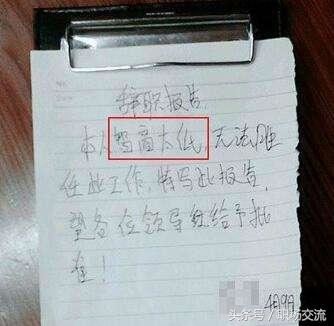 辞职报告
本人智商太低，无法胜
任此工作，特写此报告，
望各位领导给予批
准！
4月9日
头条号／职场交流